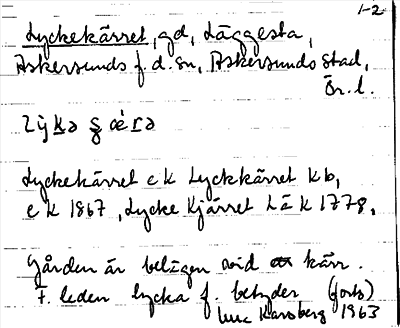 1-2
Lyckekärret, gd, Läggesta,
Askersunds f.d. sn, Askersunds stad,
Ör. l.
Lyckekärret e K Lyckkärret Kb,
e K 1867, Lycke Kjärret LÄ K 1778.
Gården är belägen vid kärr.
F. leden lycka f. betyder (forts)
1963